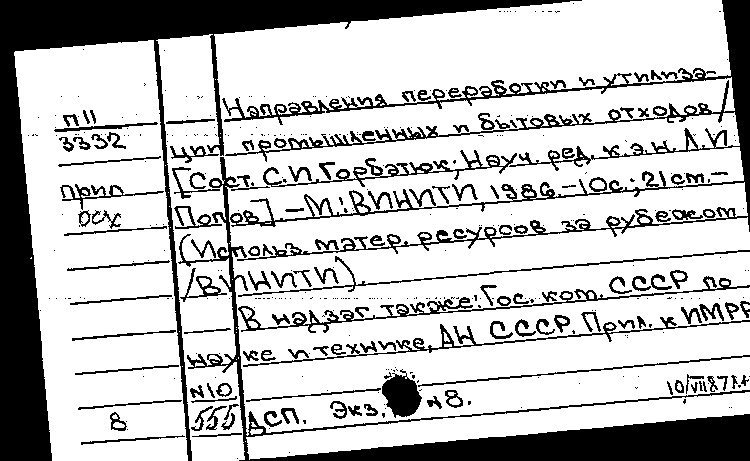 Направления переработки и утилиза-
П11
3332
ции промышленных и бытовых отходов /
[Сост. С.И.Горбатюк; Науч. ред. к.э.н. Л.И.
прил
Попов]. –М.: ВИНИТИ, 1986.–10с.; 21 см.–
(Использ. матер. ресурсов за рубежом
/ВИНИТИ).
В надзаг. также: Гос. ком. СССР по
науке и технике, АН СССР. Прил. к ИМРР
N10
8 555 ДСП. Экз. N8.
10/VII87